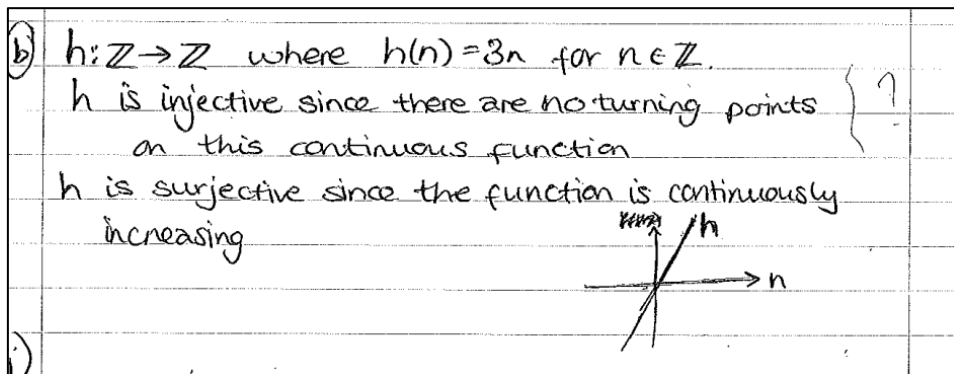 b) h: ℤ→ℤ where h(n)=3n for n∈ℤ.
h is injective since there are no turning points } ?
on this continuous function
h is surjective since the function is continuously
increasing
h
n
i)